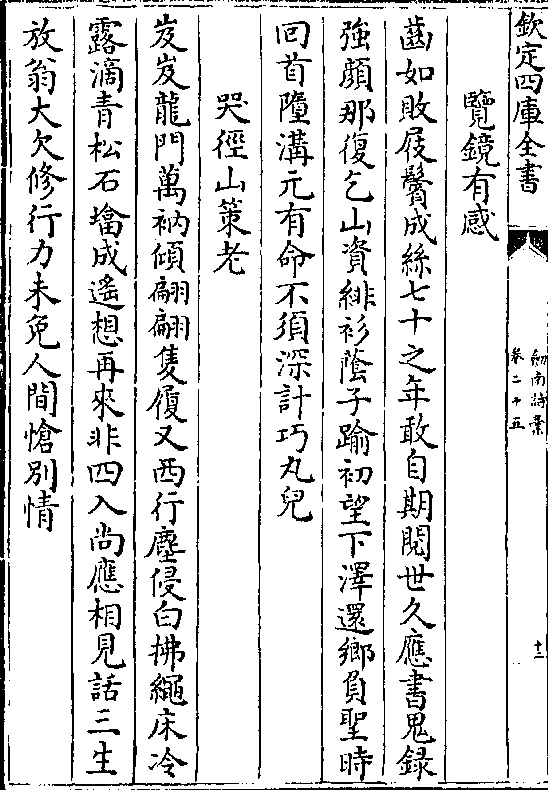 欽定四庫全書
劒南詩藁
卷二十五
十三
覽鏡有感
齒如敗屐鬢成絲七十之年敢自期閱世久應書鬼錄
強顔那復乞山資緋衫蔭子踰初望下澤還鄉負聖時
回首隍溝元有命不須深計巧丸兒
哭徑山策老
岌岌龍門萬衲傾翩翩隻履又西行塵侵白拂繩床冷
露滴青松石㙮成遙想再來非四入尚應相見話三生
放翁大欠修行力未免人間愴別情